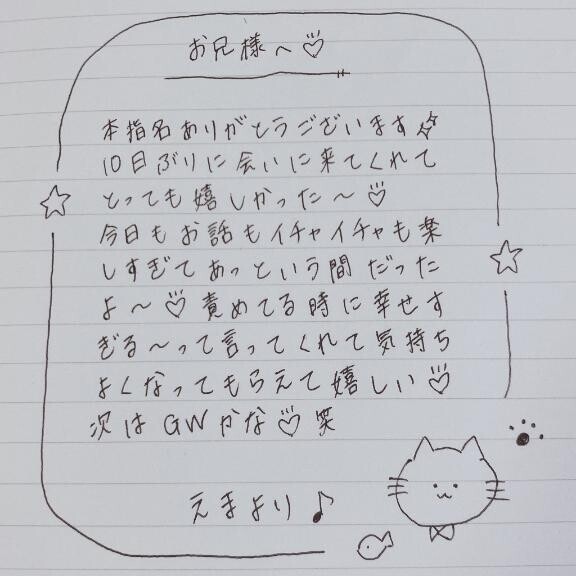 お兄様へ♡
本指名ありがとうございます✨
10日ぶりに会いに来てくれて
とっても嬉しかった〜♡
今日もお話もイチャイチャも楽
しすぎてあっという間だった
よ〜♡責めてる時に幸せす
ぎる〜って言ってくれて気持ち
よくなってもらえて嬉しい♡
次はGWかな♡笑
えまより♪